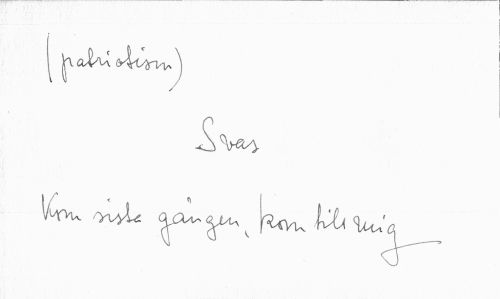 (patriotism)
Svas
Kom sista gången, kom till mig